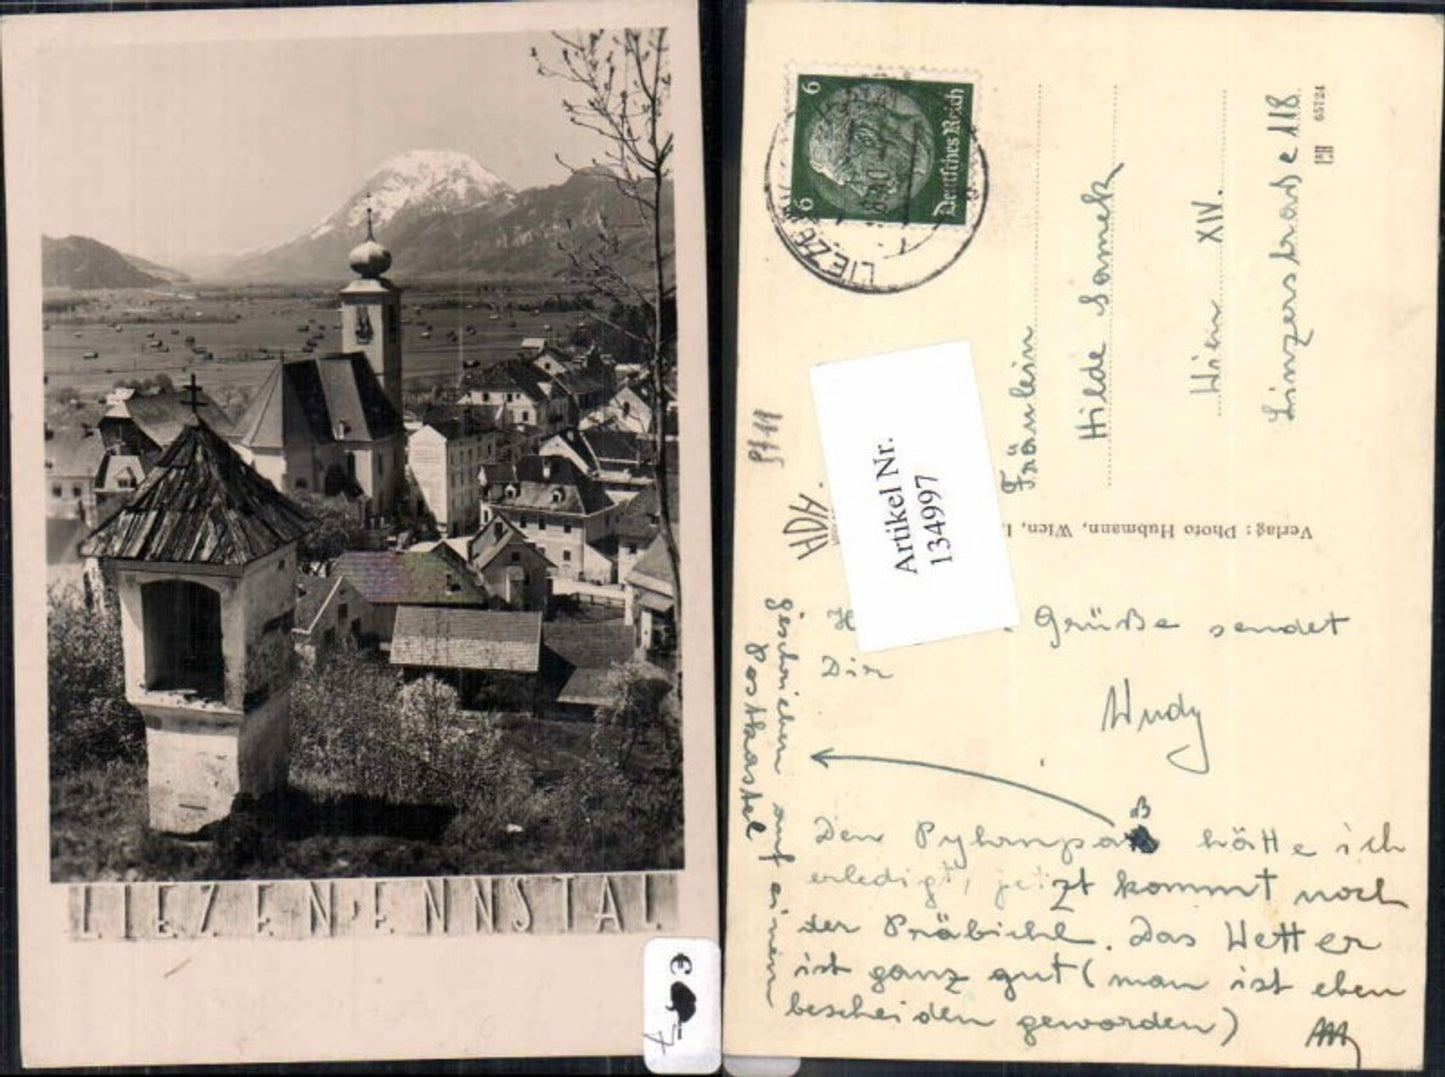 LIEZEN, ENNSTAL.
€ 7
6
6
Deutsches Reich
LIEZE
Fräulein
Hilde Samek
Wien XIV.
Linzerstrasse 118
65724
Artikel Nr.
134997
Verlag: Photo Hubmann, Wien,
Grüße sendet
Dir
Den Pyhrnpaß hätte ich
erledigt, jetzt kommt noch
der Präbichl. Das Wetter
ist ganz gut (man ist eben
bescheiden geworden)
geschrieben auf einem
Postkastel